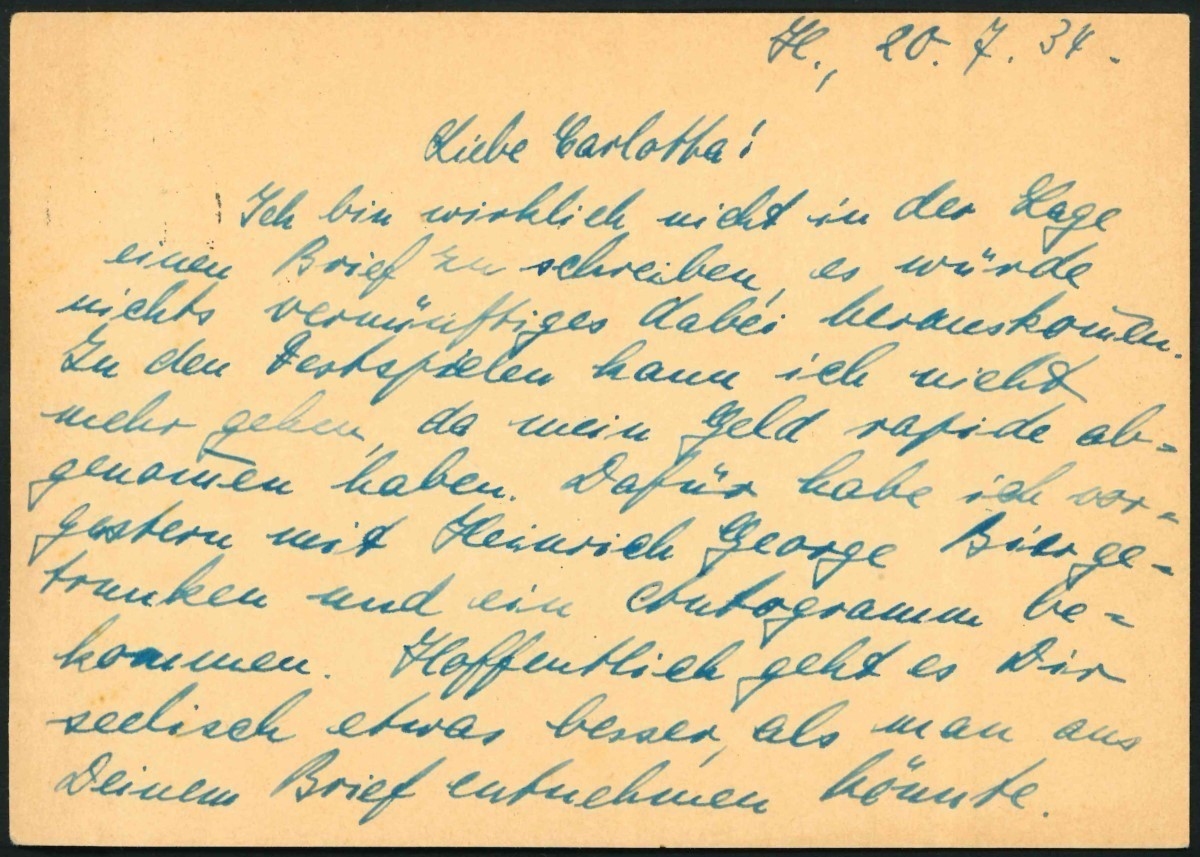 H., 20. 7. 34.
Liebe Carlotta!
Ich bin wirklich nicht in der Lage
einen Brief zu schreiben, es würde
nichts vernünftiges dabei herauskom̅en.
Zu den Festspielen kann ich nicht
mehr gehen, da mein Geld rapide ab-
genom̅en haben. Dafür habe ich vor-
gestern mit Heinrich George Bier ge-
trunken und ein Autogramm be-
kommen. Hoffentlich geht es Dir
seelisch etwas besser, als man aus
Deinem Brief entnehmen könnte.